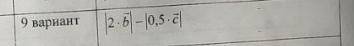 9 вариант |2 · b̅| – |0,5 · c̅|